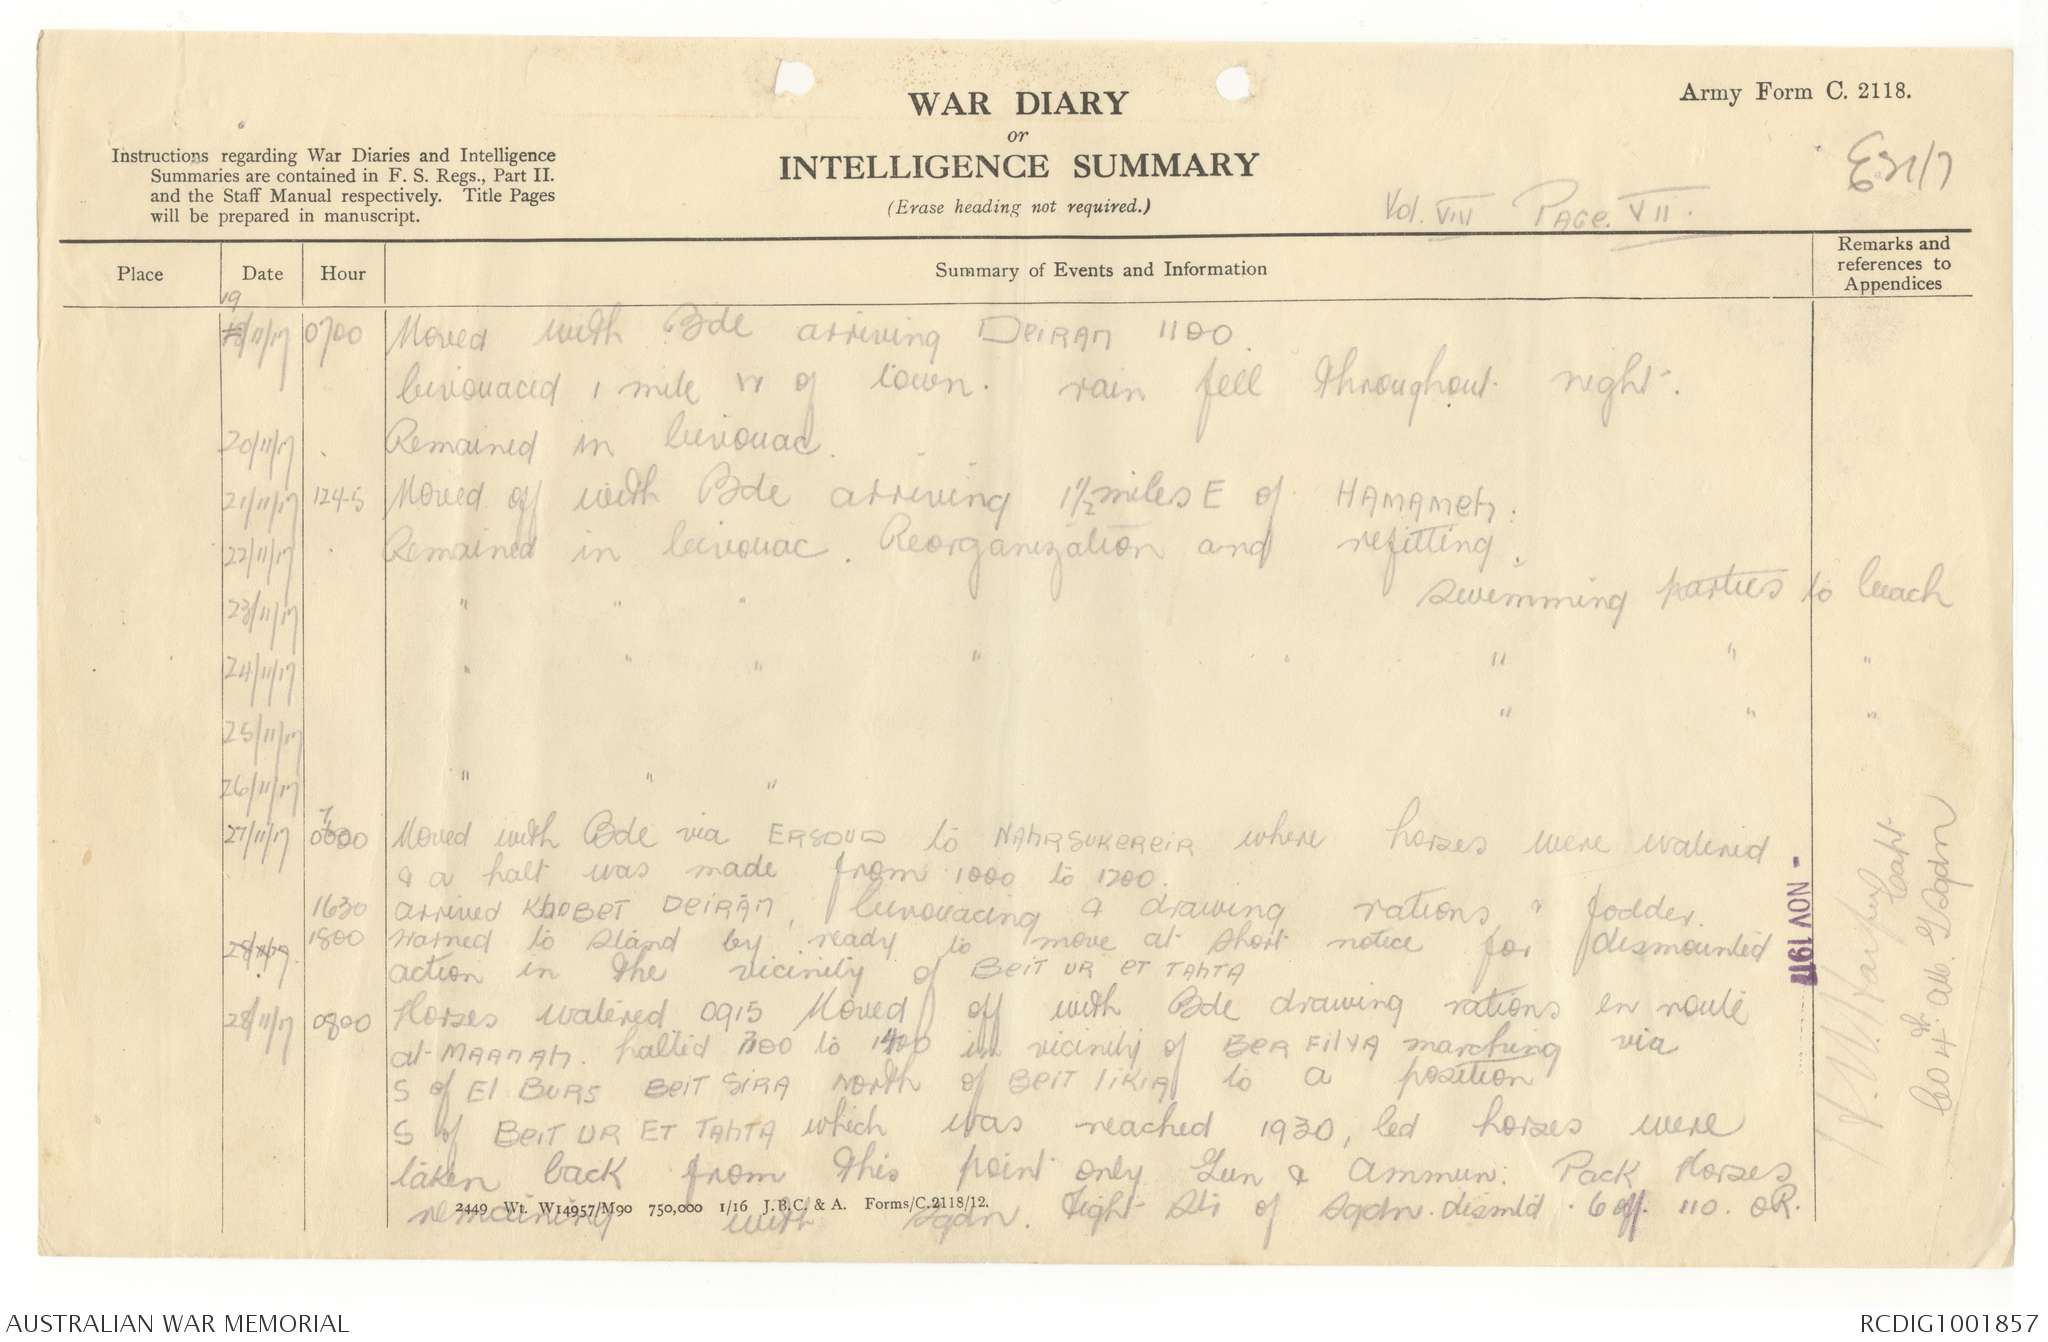 WAR DIARY
or
INTELLIGENCE SUMMARY
(Erase heading not required.)
Army Form C. 2118.
Instructions regarding War Diaries and Intelligence
Summaries are contained in F. S. Regs., Part II.
and the Staff Manual respectively. Title Pages
will be prepared in manuscript.
Vol. VIII Page. VII.
Place Date Hour Summary of Events and Information Remarks and references to Appendices
19/11/17 0700 Moved with Bde arriving DEIRAN 1100
bivouaced 1 mile W of town. rain fell throughout night.
20/11/17 . Remained in bivouac.
21/11/17 1245 Moved off with Bde arriving 1½ miles E of HAMAMEH.
22/11/17 . Remained in bivouac. Reorganization and refitting.
23/11/17 " " " swimming parties to beach
24/11/17 " " " " " " " "
25/11/17 " " "
26/11/17 " " "
27/11/17 0700 Moved with Bde via ERSDUD to NAHRSUKEREIR where horses were watered
& a halt was made from 1000 to 1200.
1630 arrived KHOBET DEIRAN, bivouacing & drawing rations & fodder.
28/11/17. 1800 warned to stand by ready to move at short notice for dismounted
action in the vicinity of BEIT UR ET TAHTA
28/11/17 0800 Horses watered 0915 Moved off with Bde drawing rations en route
at halted to 1400 in vicinity of BER FILYA marching via
S of El BURS BEIT SIRA North of BEIT LIKIA to a position
S of BEIT UR ET TAHTA which was reached 1930, led horses were
taken back from this point only Gun & Ammun: Pack Horses
remaining with Sqdn. Fight Str of Sqdn. dismtd. 6 off. 110. OR.
NOV 1917
Capt
CO 4th. Sqdn
2449 Wt. W14957/M90 750,000 1/16 J.B.C. & A. Forms/C.2118/12.
AUSTRALIAN WAR MEMORIAL
RCDIG1001857